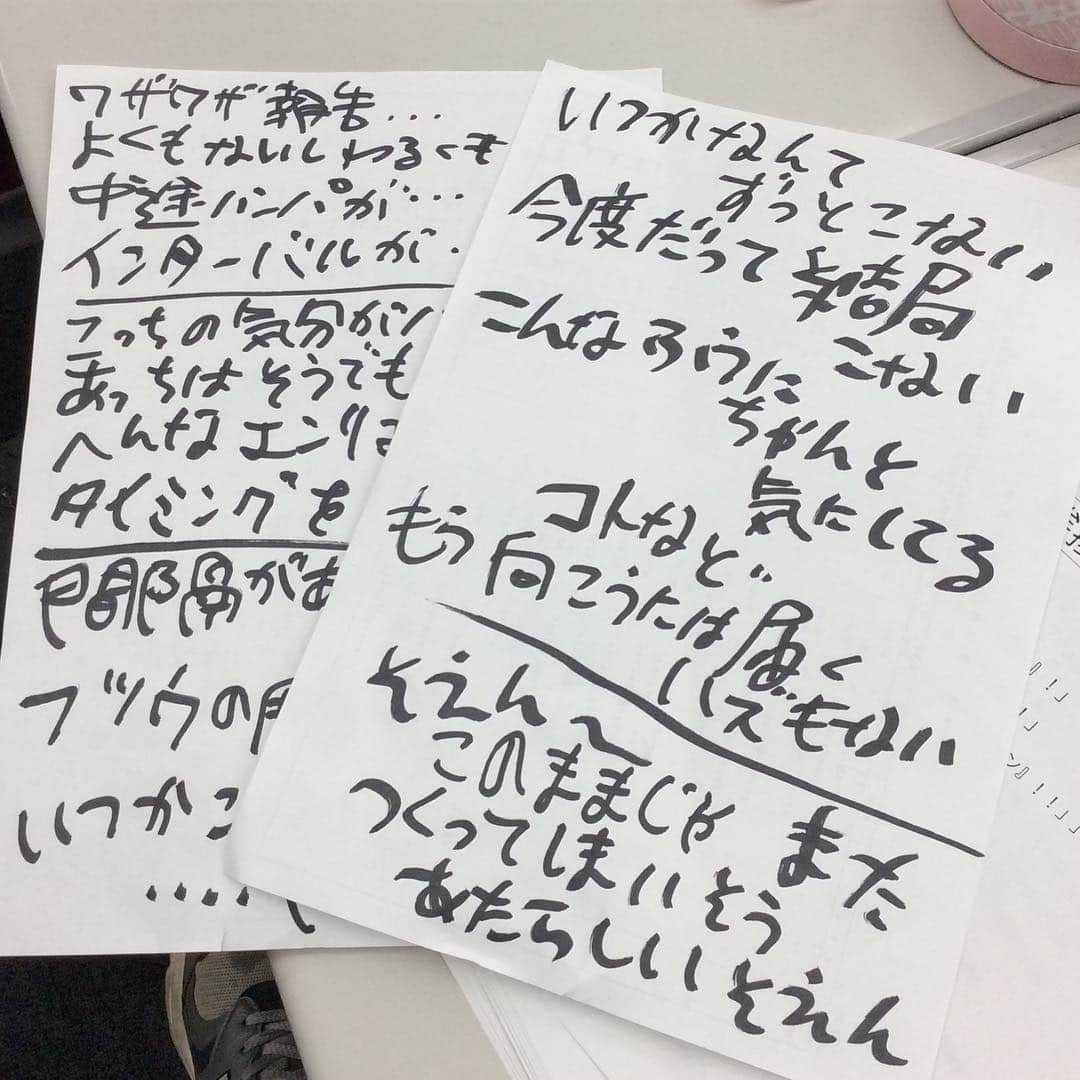 ワザワザ報告...
よくもないしわるくも
中途ハンパが...
インターバルが..
こっちの気分がい
あっちはそうでも
へんなエンリョ
タイミングを
間隔があ
フツウの
いつかこ
.....
いつかなんて
ずっとこない
今度だって結局
こない
こんなふうに
ちゃんと
気にしてる
コトなど
もう向こうには届く
ハズもない
そえん〜
このままじゃまた
つくってしまいそう
あたらしいそえん
!」
!」
ン』!!」